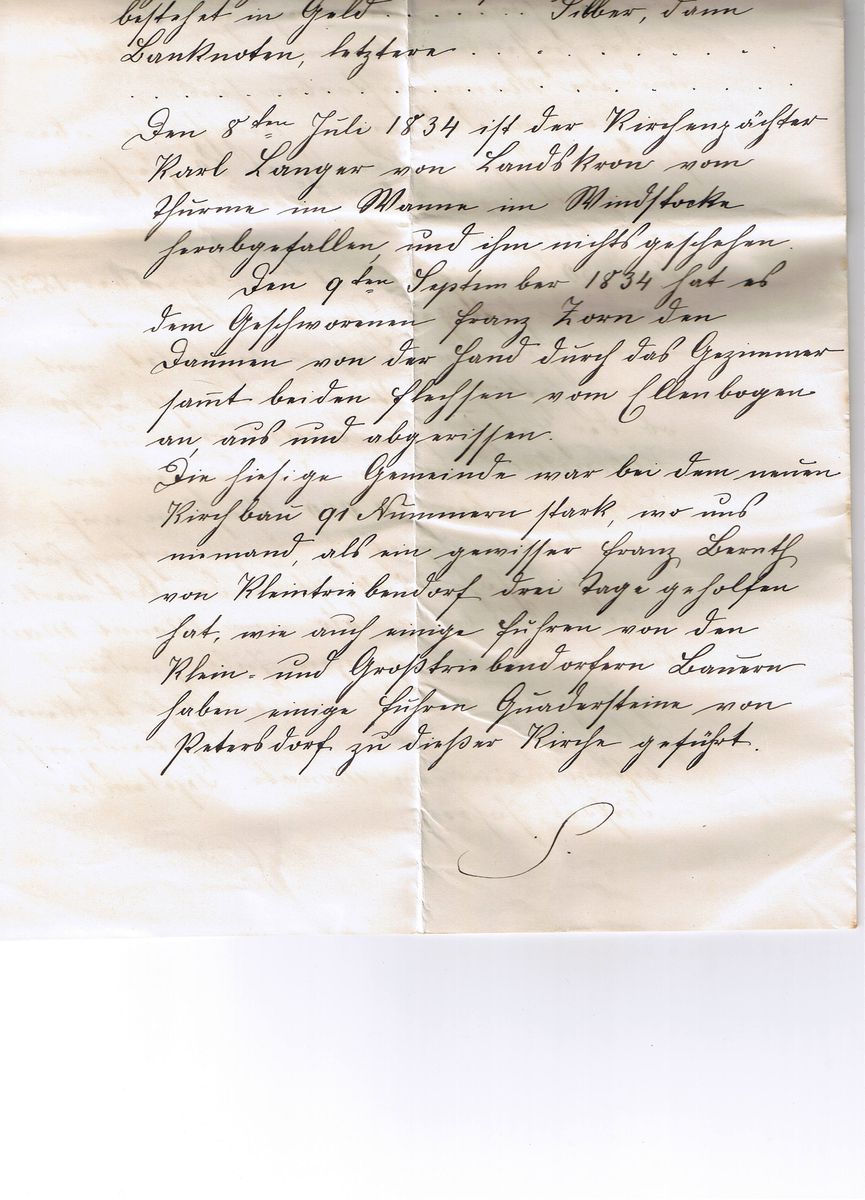 bestehet in Geld . . . . . . . Silber, dann
Banknoten, letztere . . . . . . . . . .
. . . . . . . . . . . . . . . . . . . .
Den 8ten Juli 1834 ist der Kirchenpächter
Karl Langer von Landskron vom
Thurme im Wanne im Windstocke
herabgefallen, und ihm nichts geschehen.
Den 9ten September 1834 hat es
dem Geschworenen Franz Zorn den
Daumen von der Hand durch das Gezimmer
sammt beiden Flechsen vom Ellenbogen
an, aus und abgerissen.
Die hiesige Gemeinde war bei dem neuen
Kirchbau 91 Nummern stark, wo uns
niemand, als ein gewisser Franz Beruth
von Kleintriebendorf drei Tage geholfen
hat, wie auch einige Fuhren von den
Klein- und Großtriebendorfern Bauern
haben einige Fuhren Quadersteine von
Petersdorf zu dießer Kirche geführt.
S.